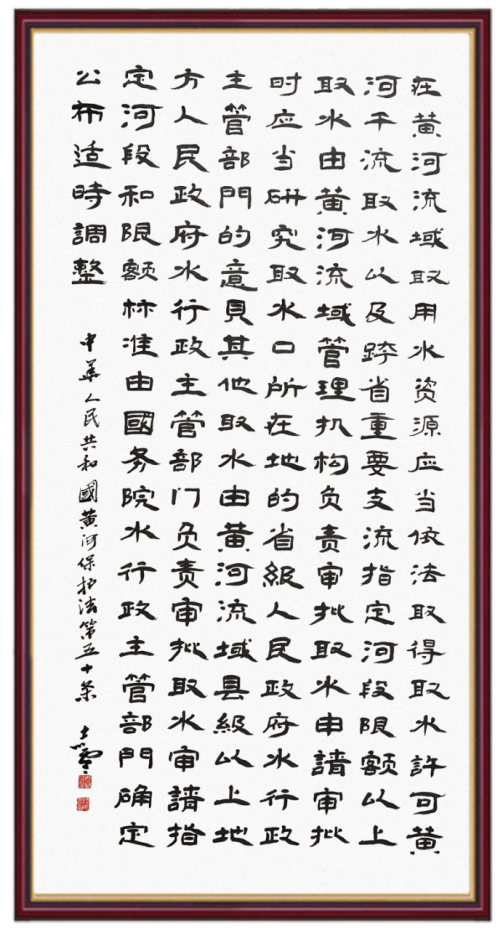 在黄河流域取用水资源应当依法取得取水許可黄
河干流取水以及跨省重要支流指定河段限额以上
取水由黄河流域管理机构负责审批取水申請审批
时应当研究取水口所在地的省級人民政府水行政
主管部門的意見其他取水由黄河流域县級以上地
方人民政府水行政主管部门负责审批取水审請指
定河段和限额标准由國务院水行政主管部門确定
公布适時調整
中華人民共和國黄河保护法第五十条